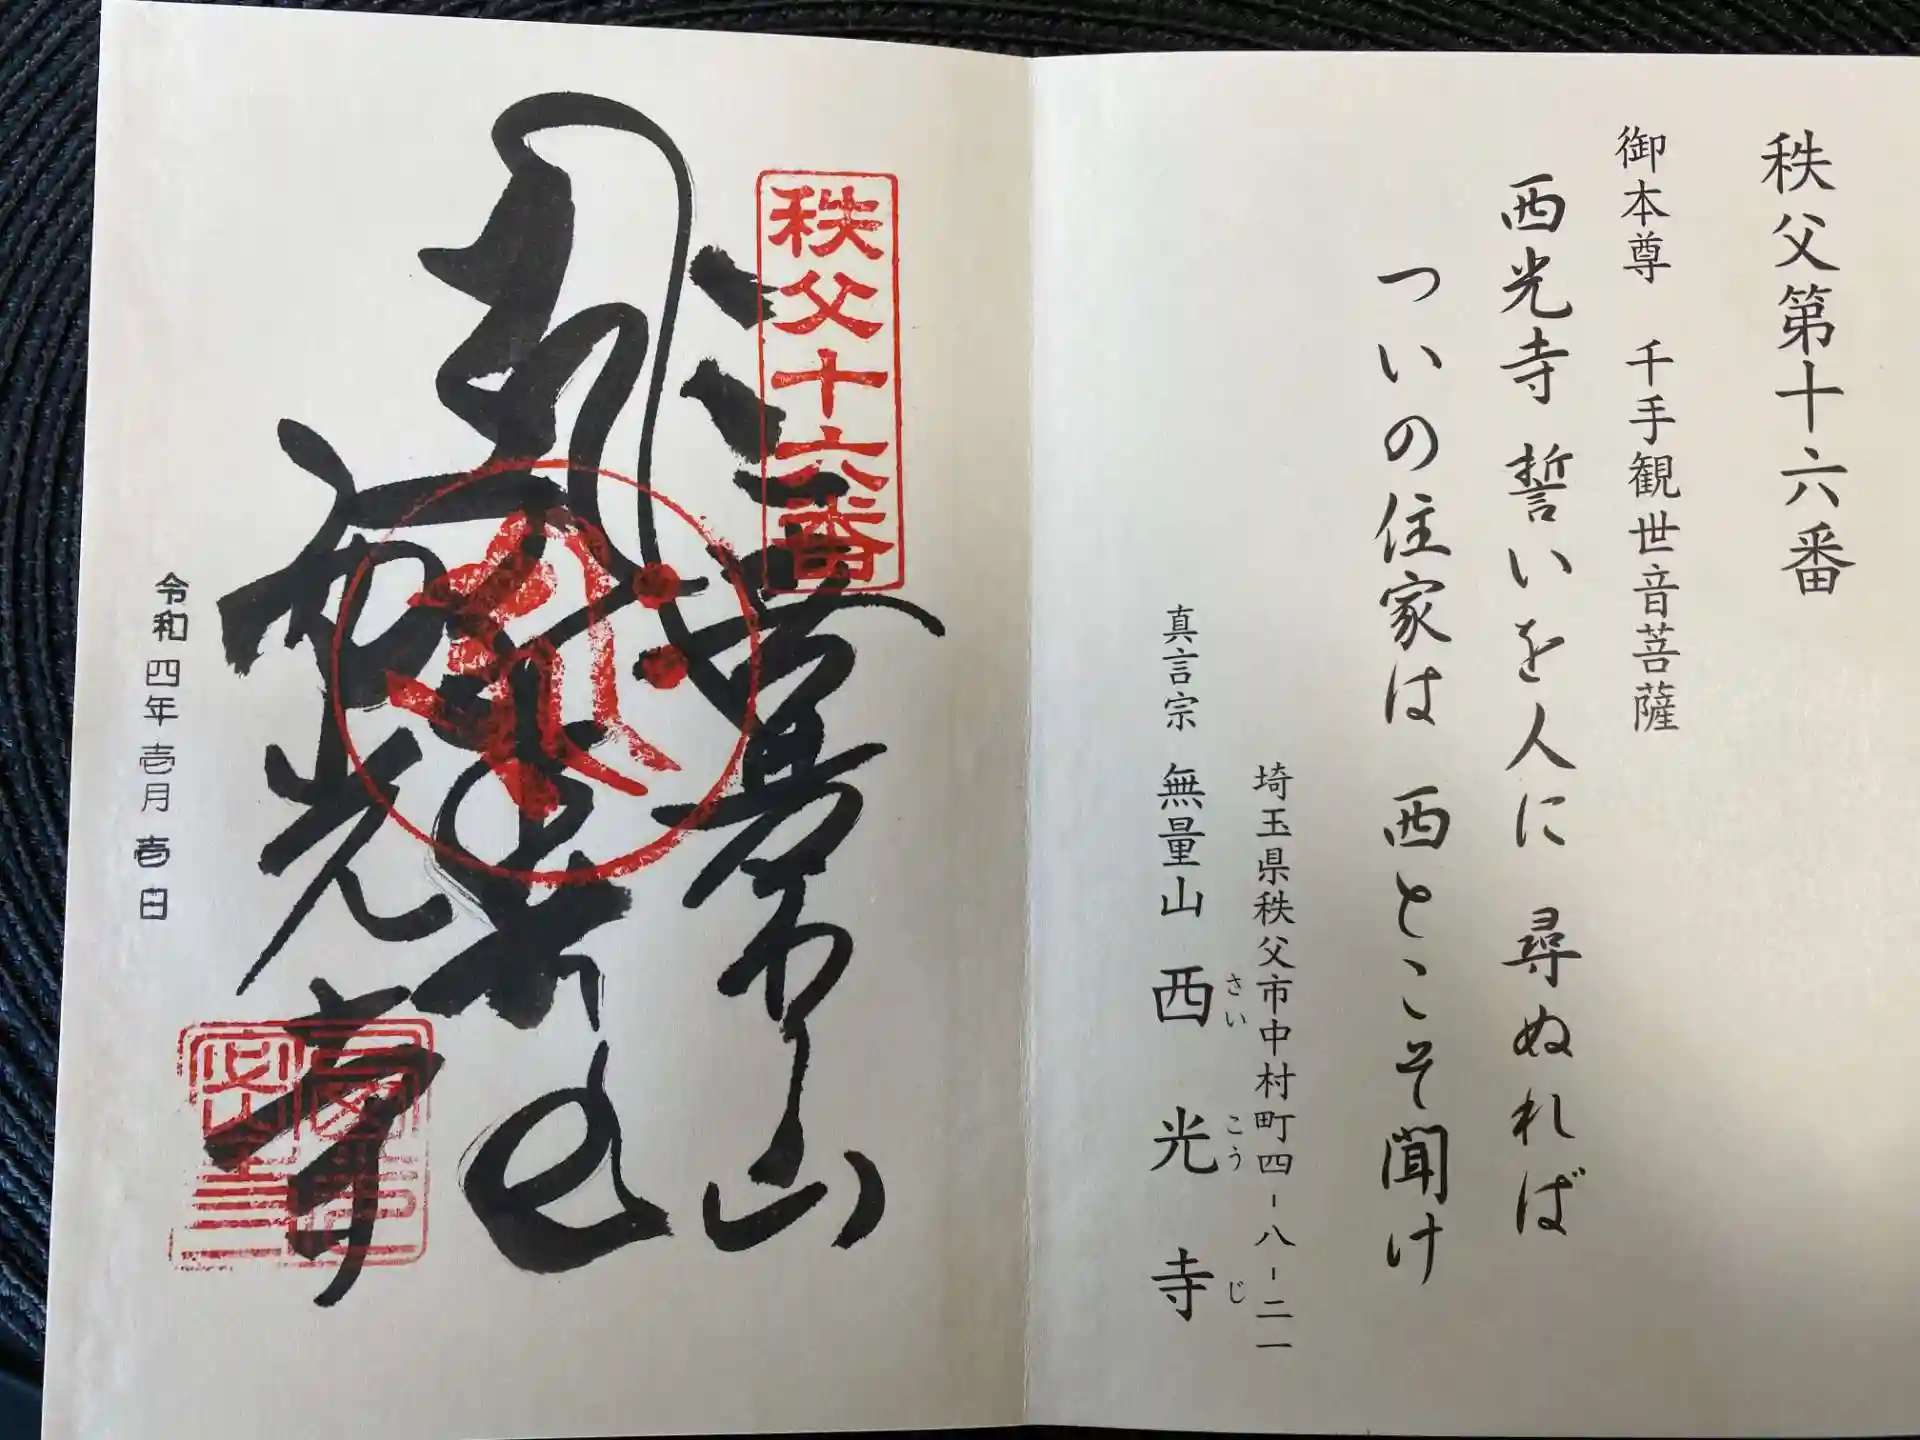 秩父第十六番
御本尊 千手観世音菩薩
西光寺 誓いを人に 尋ぬれば
ついの住家は 西とこそ聞け
埼玉県秩父市中村町四-八-二一
真言宗 無量山 西光寺
さいこうじ
秩父十六番
山
西光寺
令和四年壱月壱日